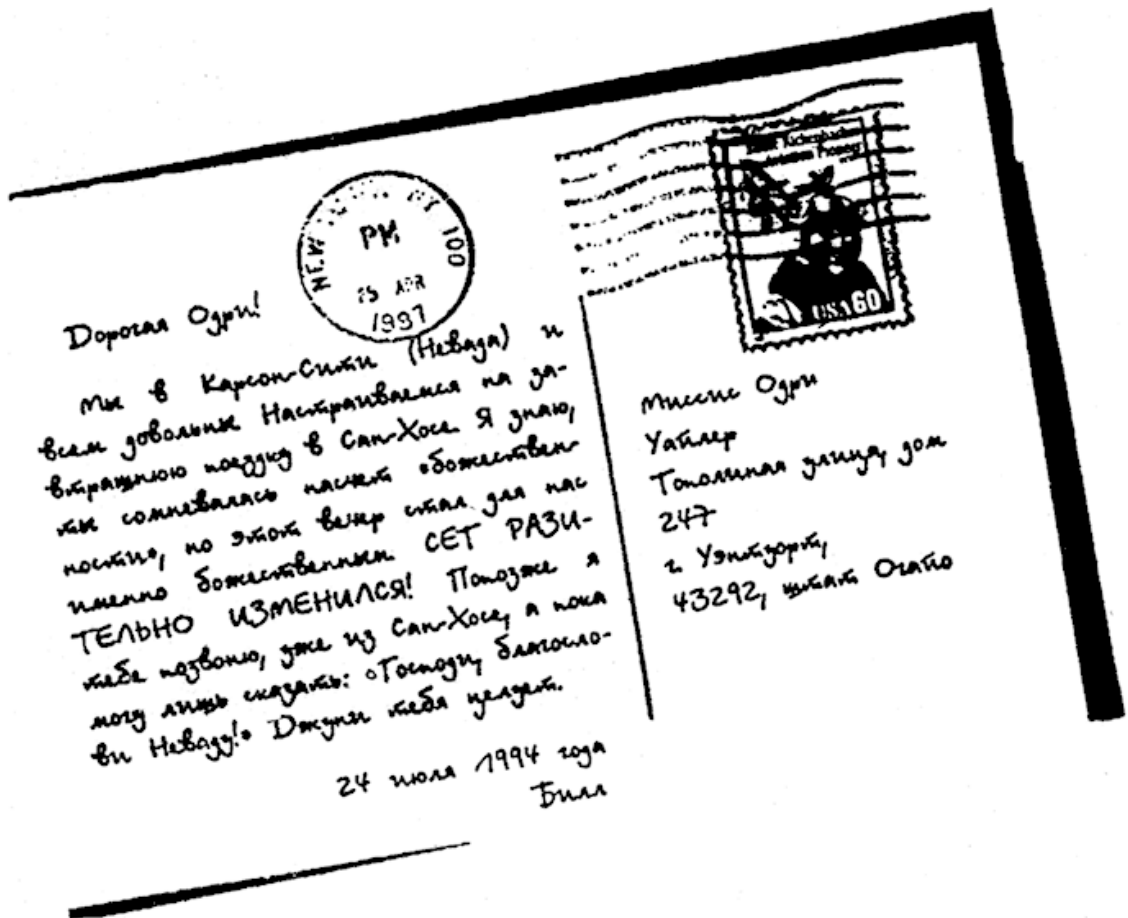 NEW
PM
100
25 APR
1997
USA60
Дорогая Одри!
Мы в Карсон-Сити (Невада) и
всем довольны. Настраиваемся на за-
втрашнюю поездку в Сан-Хосе. Я знаю,
ты сомневалась насчет «божествен-
ности», но этот вечер стал для нас
именно божественным. СЕТ РАЗИ-
ТЕЛЬНО ИЗМЕНИЛСЯ! Попозже я
тебе позвоню, уже из Сан-Хосе, а пока
могу лишь сказать: «Господи, благосло-
ви Неваду!» Джуни тебя целует.
24 июля 1994 года
Билл
Миссис Одри
Уайлер
Тополиная улица, дом
247
г. Уэнтуорт,
43292, штат Огайо